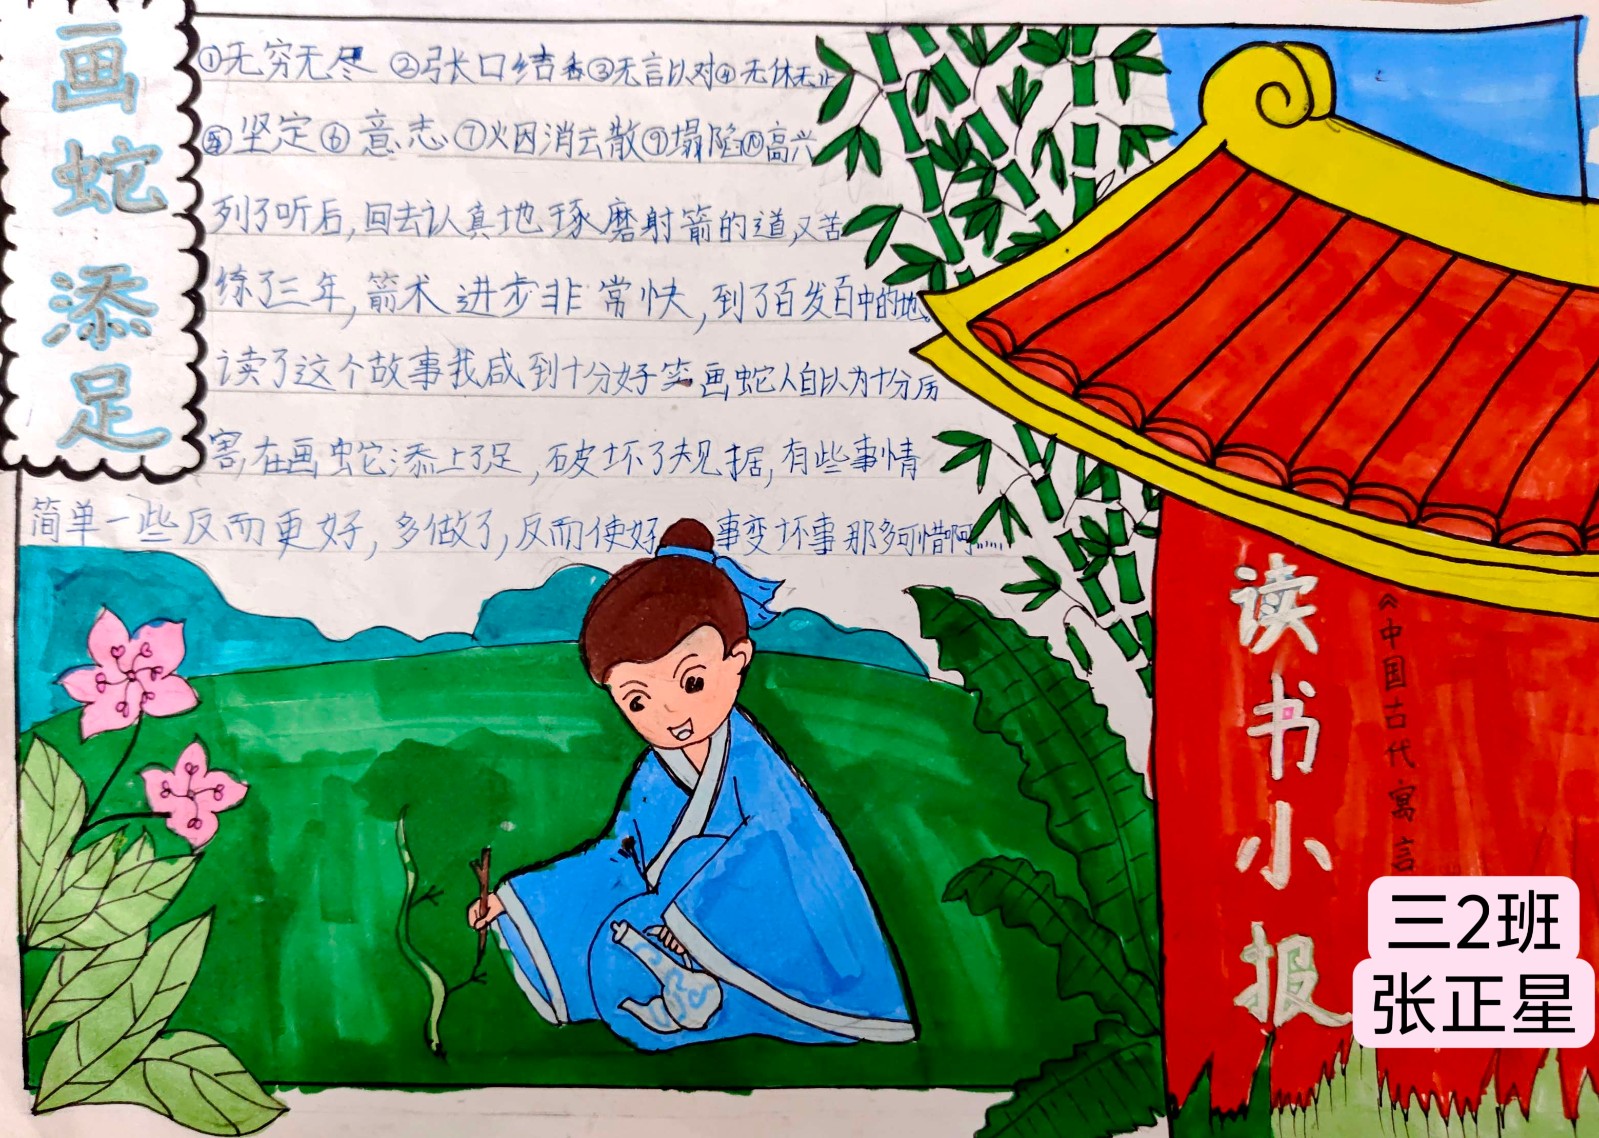 画蛇添足
①无穷无尽 ②张口结舌③无言以对④无休无止
⑤坚定⑥意志⑦火因消云散⑨塌陷⑩高兴
列了听后,回去认真地琢磨射箭的道,又苦
练了三年,箭术进步非常快,到了百发百中的地。
读了这个故事我咸到十分好笑画蛇人自以为十分厉
害,在画蛇添上了足,破坏了规据,有些事情
简单一些反而更好,多做了,反而使好事变坏事那多可惜啊……
读书小报
《中国古代寓言
三2班
张正星